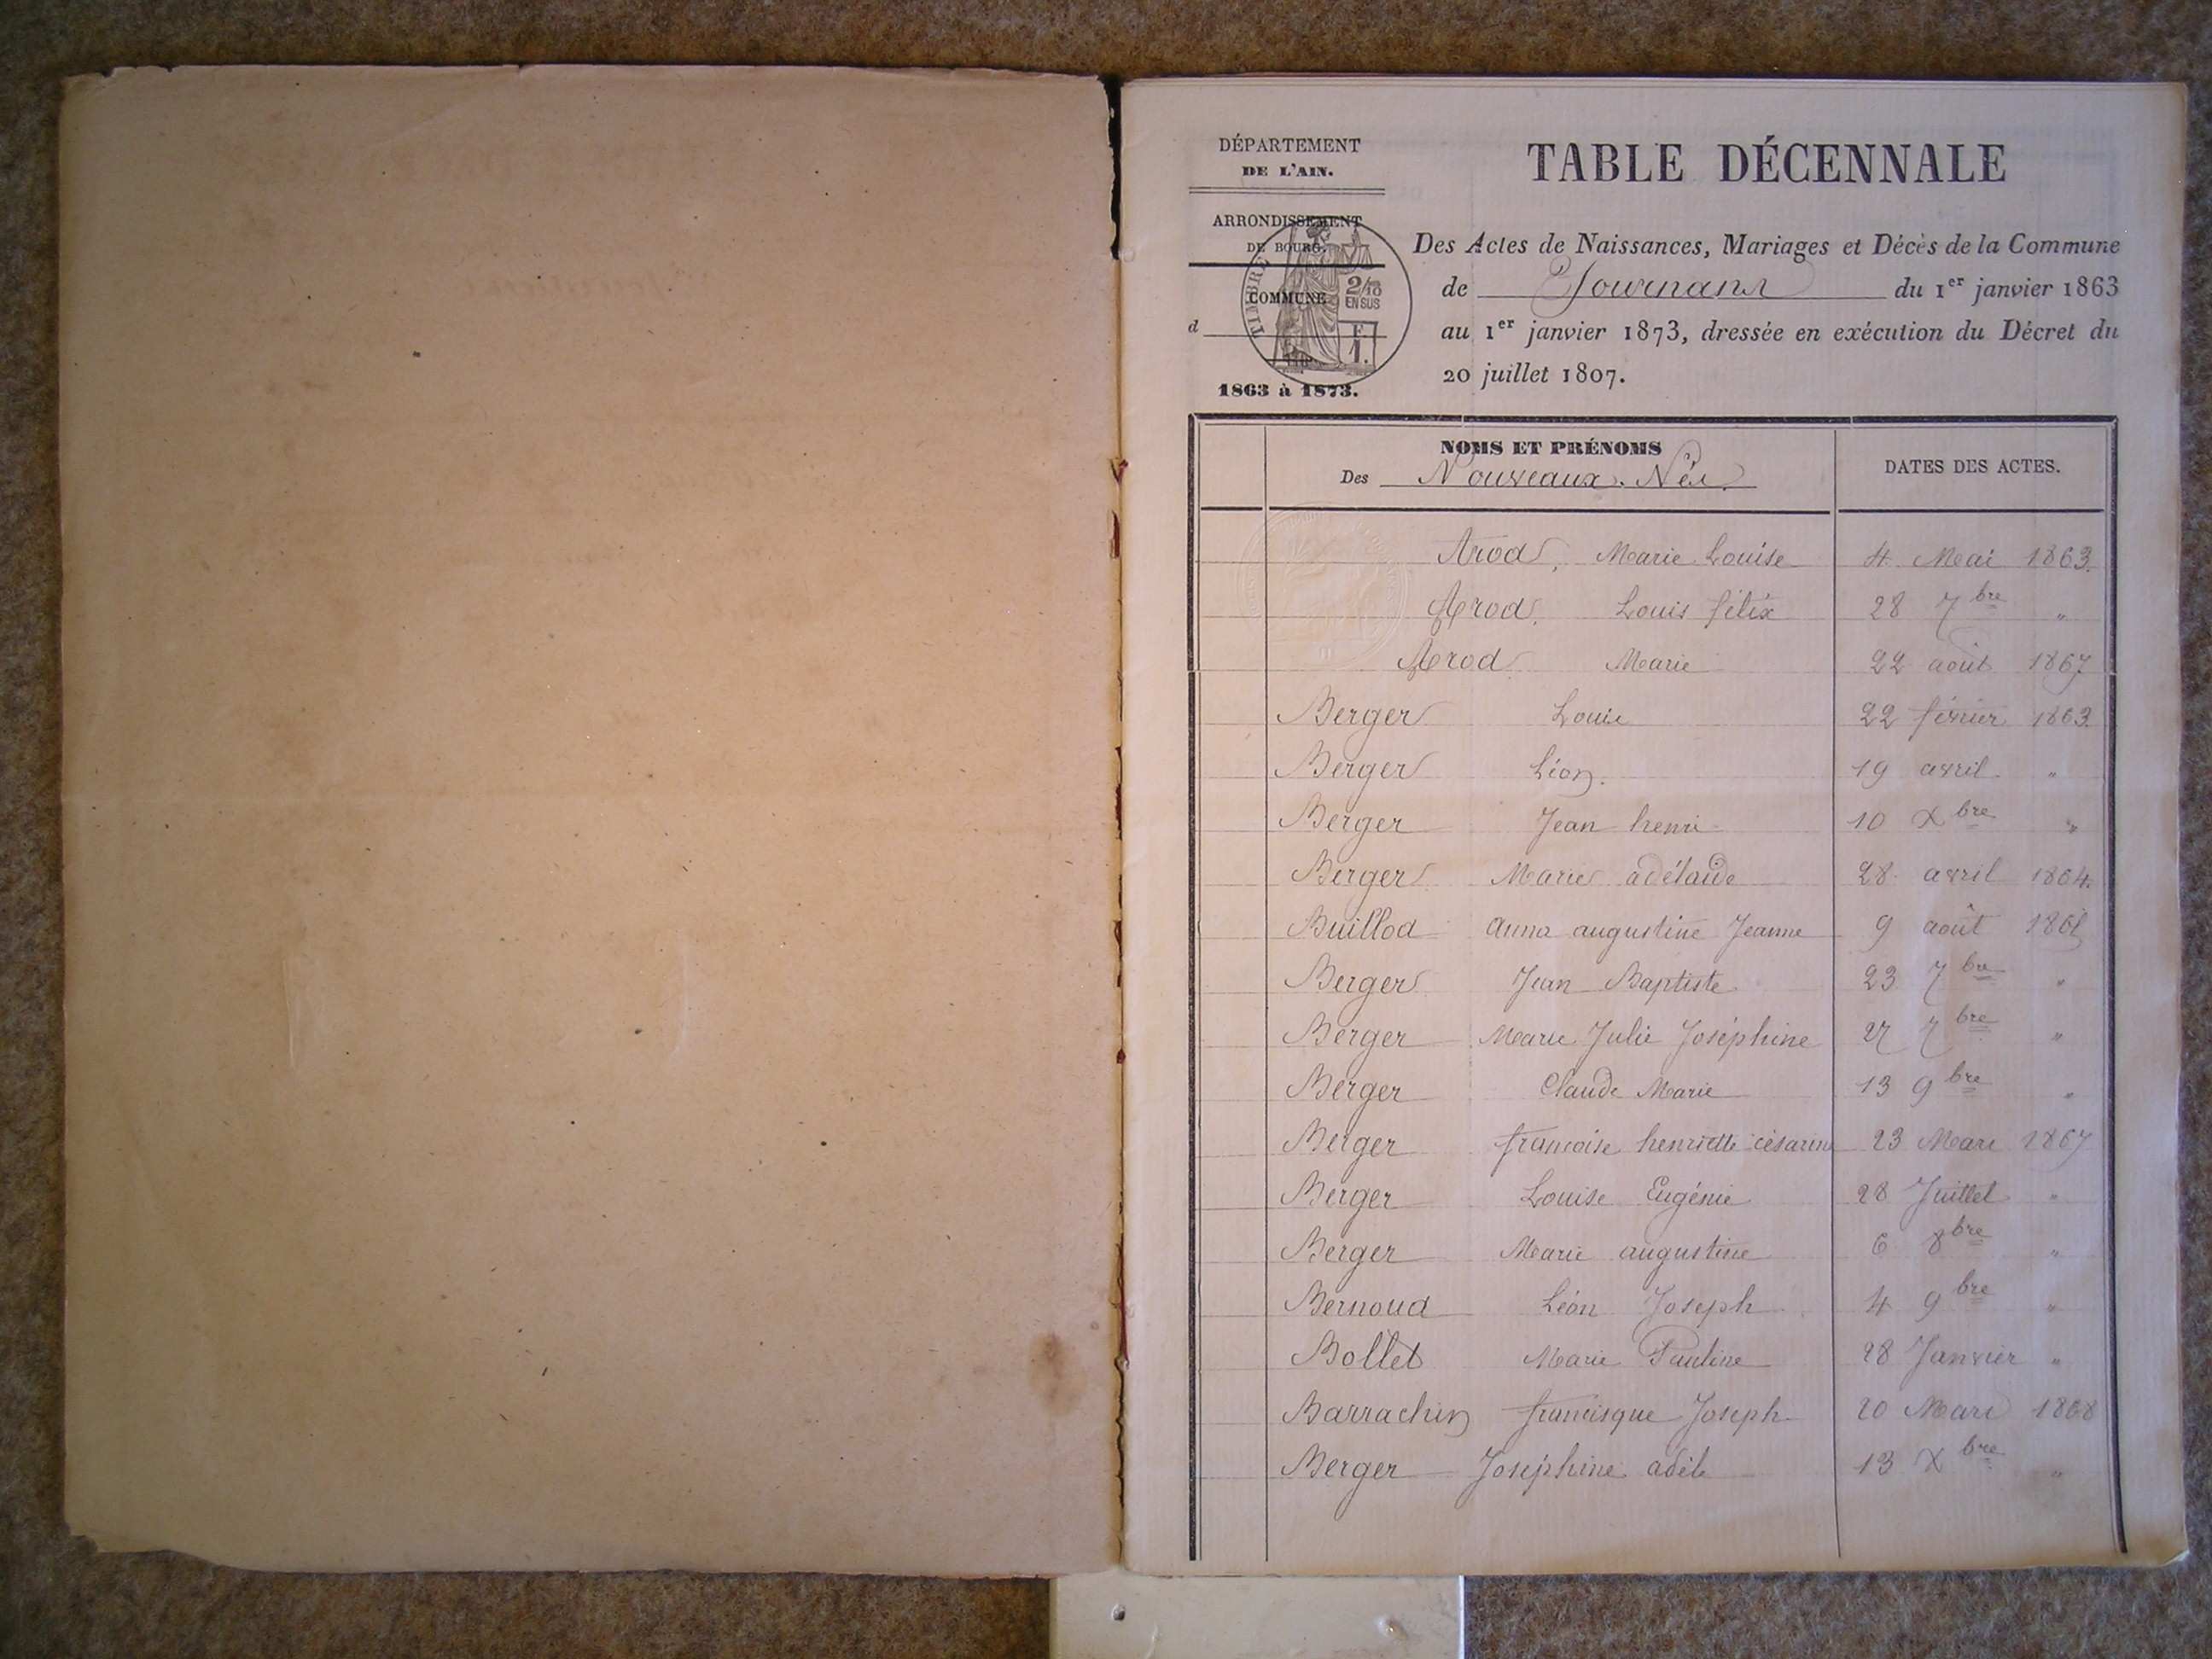 DÉPARTEMENT
DE L'AIN.
ARRONDISSEMENT
DE BOURG.
COMMUNE
d
1863 à 1873.
TIMBRE
2/10
EN SUS
F.
1.
TABLE DÉCENNALE
Des Actes de Naissances, Mariages et Décès de la Commune
de Journans du 1er janvier 1863
au 1er janvier 1873, dressée en exécution du Décret du
20 juillet 1807.
NOMS ET PRÉNOMS
Des Nouveaux-Nés
DATES DES ACTES.
Arod, Marie Louise 4 Mai 1863.
Arod, Louis félix 28 7bre "
Arod Marie 22 août 1867
Berger Louis 22 février 1863.
Berger Léon. 19 avril "
Berger Jean henri 10 Xbre "
Berger Marie adélaïde 28 avril 1864.
Buillod anna augustine Jeanne 9 août
Berger Jean Baptiste 23 7bre "
Berger Marie Julie Joséphine 27 7bre "
Berger Claude Marie 13 9bre "
Berger françoise henriette césarine 23 Mars 1867
Berger Louise Eugénie 28 Juillet "
Berger Marie augustine 6 8bre "
Bernoud Léon Joseph 4 9bre "
Bollet Marie Pauline 28 Janvier "
Barrachin francisque Joseph 20 Mars 1868
Berger Joséphine adèle 13 Xbre "